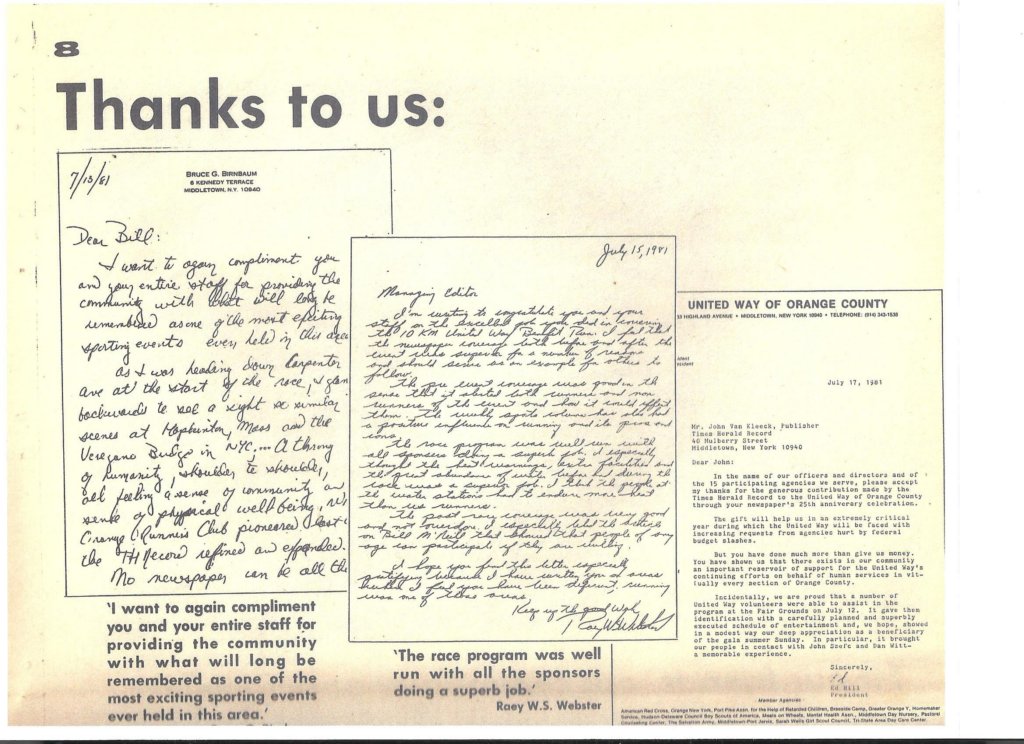 8
Thanks to us:
7/13/81
BRUCE G. BIRNBAUM
6 KENNEDY TERRACE
MIDDLETOWN, N.Y. 10940
Dear Bill:
I want to again compliment you
and your entire staff for providing the
community with what will long be
remembered as one of the most exciting
sporting events ever held in this area
As I was heading down Carpenter
ave at the start of the race, I glan
backwards to see a sight so similar
scenes at Hopkinton, Mass and the
Verezano Bridge in NYC.... A throng
of humanity, shoulder to shoulder,
all feeling a sense of community an
sense of physical well being,
Orange Runners Club pioneered last
the TH Record refined an expanded.
No newspaper can be all the
'I want to again compliment
you and your entire staff for
providing the community
with what will long be
remembered as one of the
most exciting sporting events
ever held in this area.'
July 15, 1981
Managing Editor
I'm writing to congratulate you and your
staff on the excellent job you did in covering
the 10 KM United Way Benefit Run. I feel that
the newspaper coverage both before and after the
event was superior for a number of reasons
and should serve as an example for others to
follow.
The pre event coverage was good in the
sense that it alerted both runners and non
runners of the event and how it would affect
them. The weekly sports column has also had
a positive influence on running and its pros and
cons.
The race program was well run with
all sponsors doing a superb job. I especially
thought the heat warnings, extra facilities and
the great abundance of water before and during the
race was a superior job. I think the people at
the water stations had to endure more heat
than us runners.
The post race coverage was very good
and not overdone. I especially liked the article
on Bill McNeil that showed that people of any
age can participate if they are willing.
I hope you find this letter especially
gratifying because I have written you on areas
which I feel you have been deficient, running
was one of those areas.
Keep up the good work,
Raey W.S. Webster
'The race program was well
run with all the sponsors
doing a superb job.'
Raey W.S. Webster
UNITED WAY OF ORANGE COUNTY
33 HIGHLAND AVENUE • MIDDLETOWN, NEW YORK 10940 • TELEPHONE: (914) 343-1538
July 17, 1981
Mr. John Van Kleeck, Publisher
Times Herald Record
40 Mulberry Street
Middletown, New York 10940
Dear John:
In the name of our officers and directors and of
the 15 participating agencies we serve, please accept
my thanks for the generous contribution made by the
Times Herald Record to the United Way of Orange County
through your newspaper's 25th anniverary celebration.
The gift will help us in an extremely critical
year during which the United Way will be faced with
increasing requests from agencies hurt by federal
budget slashes.
But you have done much more than give us money.
You have shown us that there exists in our community
an important reservoir of support for the United Way's
continuing efforts on behalf of human services in vit-
tually every section of Orange County.
Incidentally, we are proud that a number of
United Way volunteers were able to assist in the
program at the Fair Grounds on July 12. It gave them
identification with a carefully planned and superbly
executed schedule of entertainment and, we hope, showed
in a modest way our deep appreciation as a beneficiary
of the gala summer Sunday. In particular, it brought
our people in contact with John Szefc and Dan Witt-
a memorable experience.
Sincerely,
Ed
Ed Hill
President
Member Agencies
American Red Cross, Orange New York, Port Pike Assn. for the Help of Retarded Children, Braeside Camp, Greater Orange Y, Homemaker
Service, Hudson Delaware Council Boy Scouts of America, Meals on Wheels, Mental Health Assn., Middletown Day Nursery, Pastoral
Counseling Center, The Salvation Army, Middletown-Port Jervis, Sarah Wells Girl Scout Council, Tri-State Area Day Care Center.